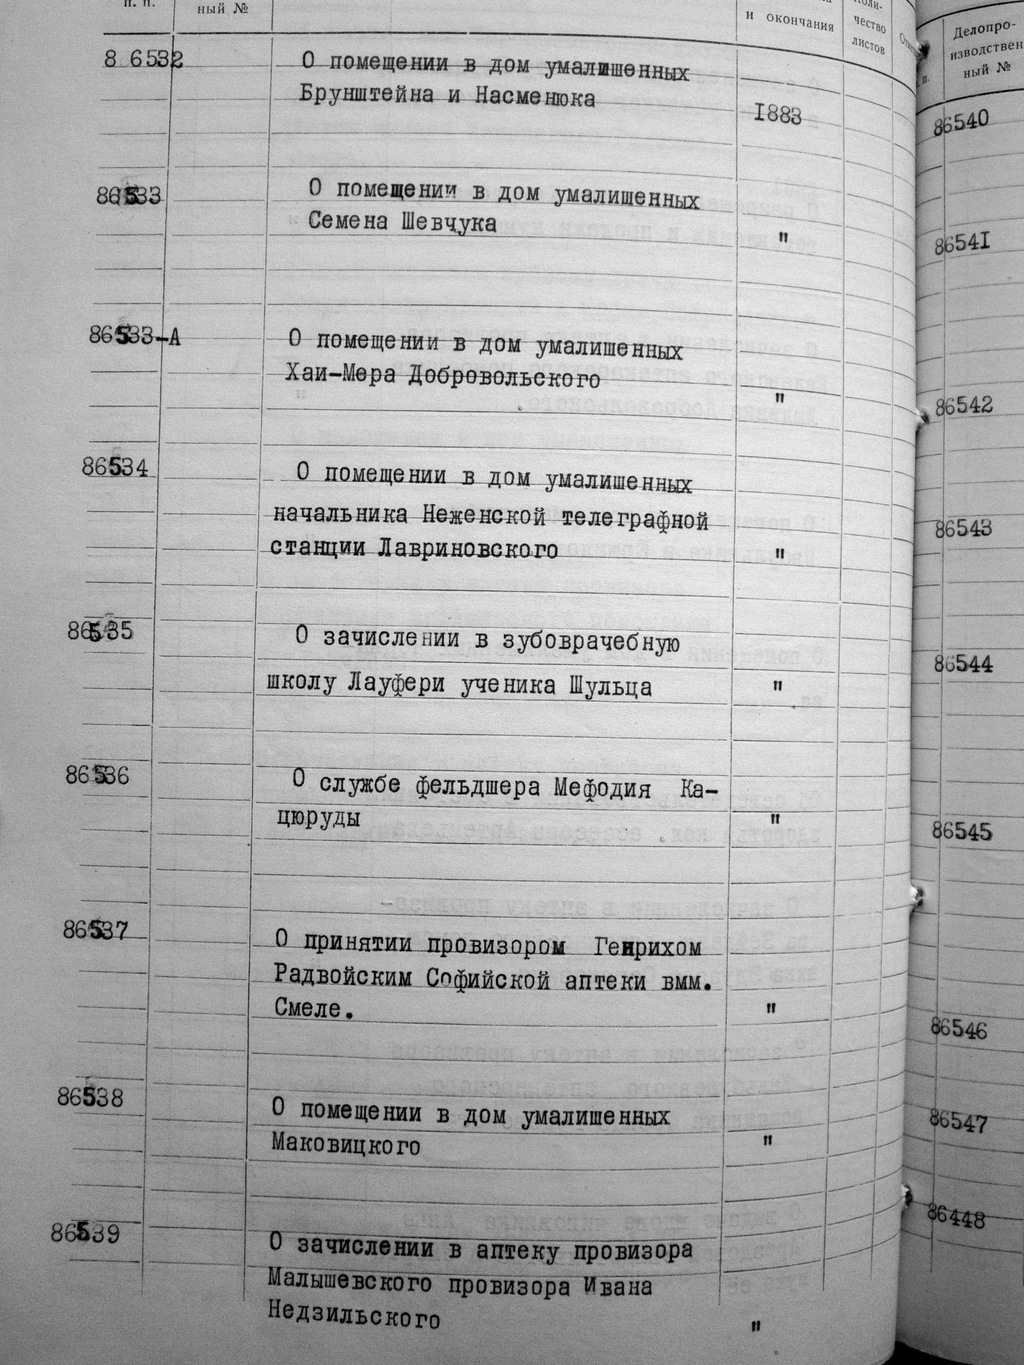 п. п.
ный №
и окончания
чество
листов
8 6532
О помещении в дом умалишенных
Брунштейна и Насменюка
1883
86533
О помещении в дом умалишенных
Семена Шевчука
"
86533-А
О помещении в дом умалишенных
Хаи-Мера Добровольского
"
86534
О помещении в дом умалишенных
начальника Неженской телеграфной
станции Лавриновского
"
86535
О зачислении в зубоврачебную
школу Лауфери ученика Шульца
"
86536
О службе фельдшера Мефодия Ка-
цюруды
"
86537
О принятии провизором Генрихом
Радвойским Софийской аптеки вмм.
Смеле.
"
86538
О помещении в дом умалишенных
Маковицкого
"
86539
О зачислении в аптеку провизора
Малышевского провизора Ивана
Недзильского
"
Делопро-
изводствен
ный №
п.
86540
86541
86542
86543
86544
86545
86546
86547
86448